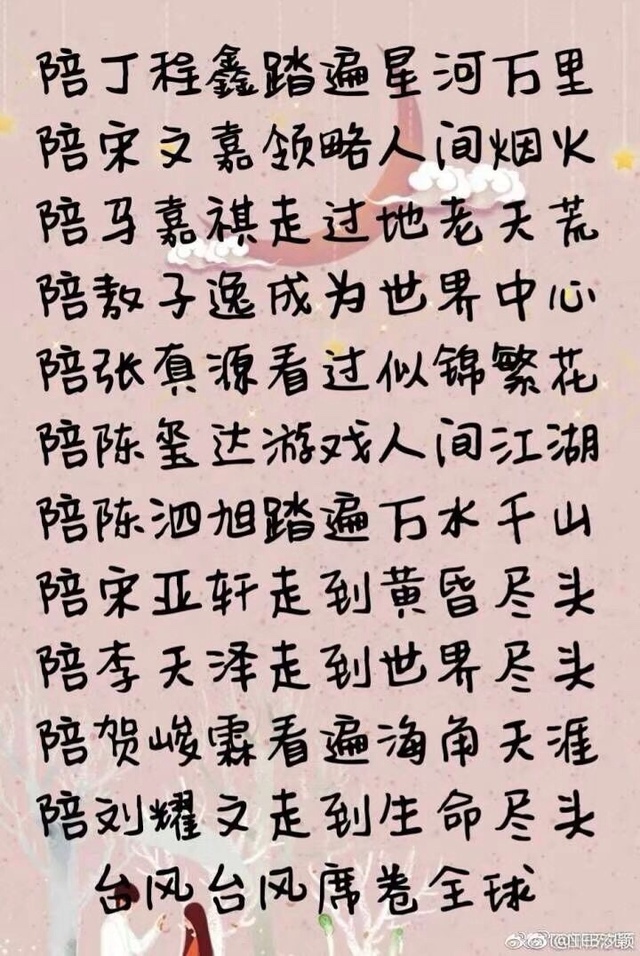 陪丁程鑫踏遍星河万里
陪宋文嘉领略人间烟火
陪马嘉祺走过地老天荒
陪敖子逸成为世界中心
陪张真源看过似锦繁花
陪陈玺达游戏人间江湖
陪陈泗旭踏遍万水千山
陪宋亚轩走到黄昏尽头
陪李天泽走到世界尽头
陪贺峻霖看遍海角天涯
陪刘耀文走到生命尽头
台风台风席卷全球